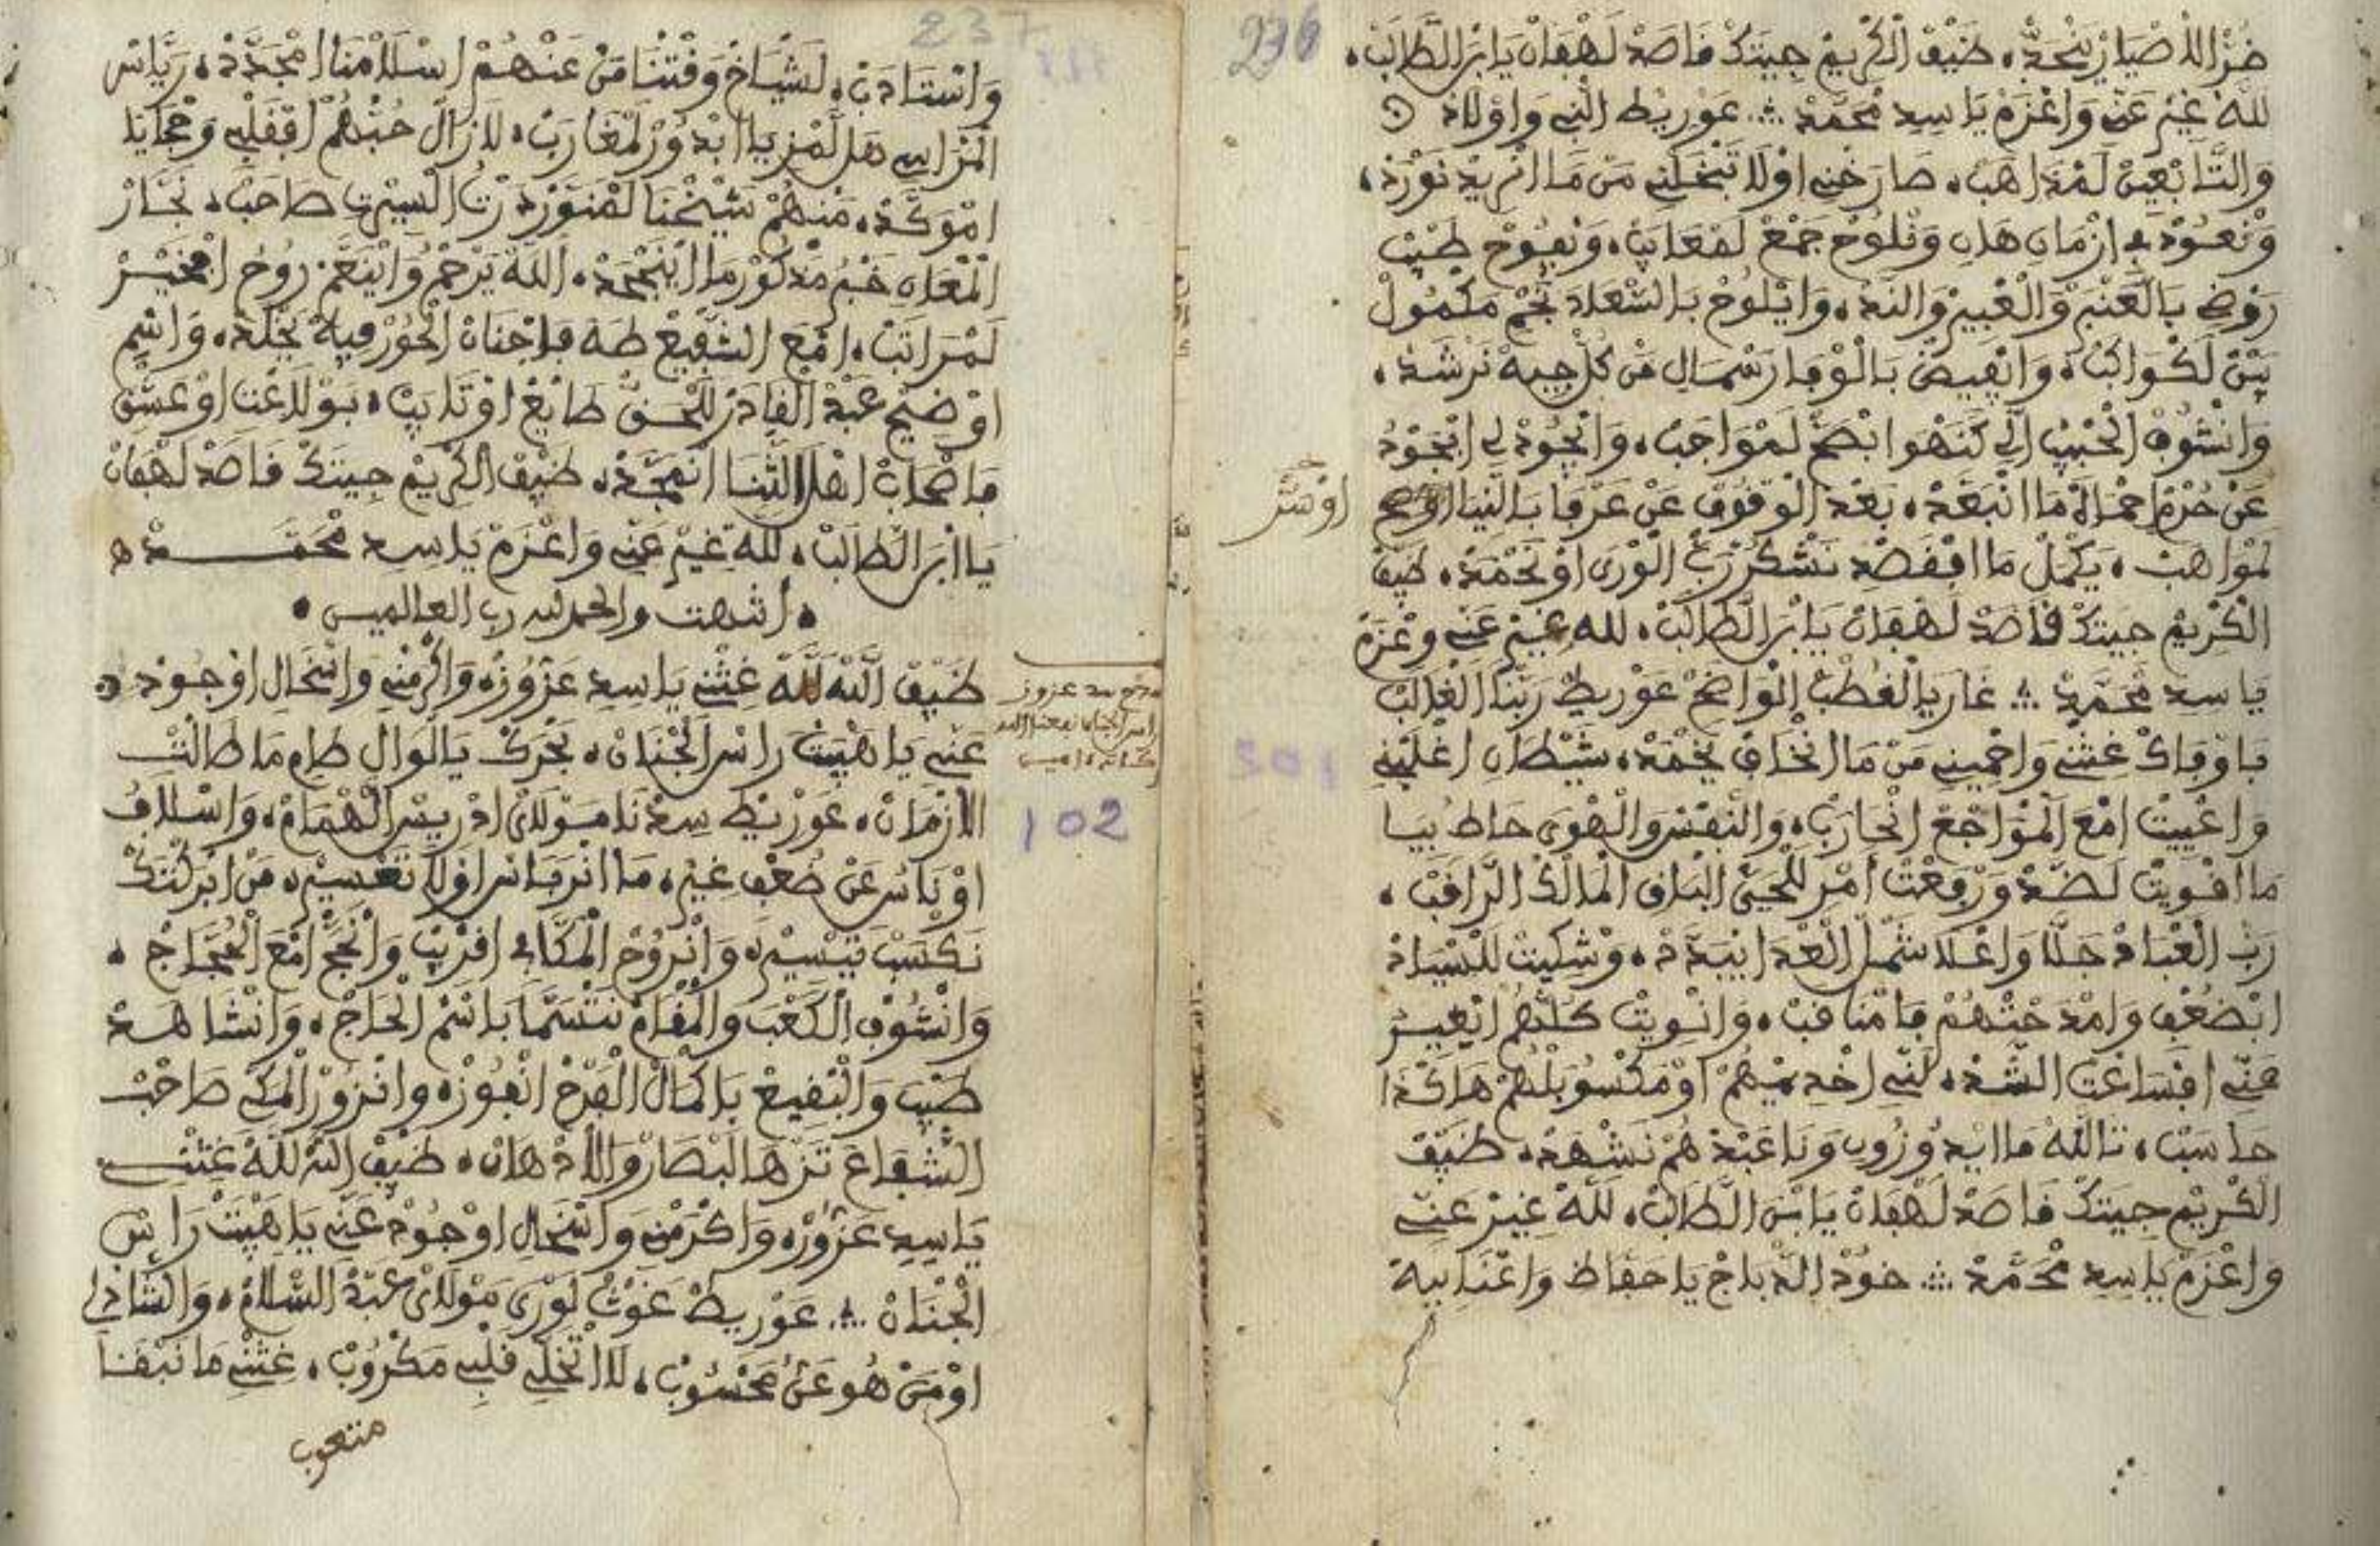 236
ضر الاضيار ينجد، ضيف الكريم جيتك قاصد لهفان يا ابن الطالب،
لله غير عني واعزم يا سيد محمد ∴ عوريط النبي واولاد
والتابعين لمذاهب، صارخني اولا تبخلني من ما انريد نورد،
ونعود في ازمان هان ونلوح جمع لمعايب، ونفوح طيب
روضي بالعنبر والعبير والند، وايلوح بالسعاد نجم مكمول
بين لكواكب، وانفيض بالوفا رسمال من كل جيه نرشد،
وانشوف الحبيب الي كنهوا بضح لمواجب، وانجود لي ابجود
عن حرم احماه ما انبعد، بعد الوقوف عن عرفا بالنيا اوضح
اونشر
لمواهب، يكمل ما اقفصد نشكر رب الورى او نحمد، ضيف
الكريم جيتك قاصد لهفان يا ابن الطالب، لله غير عني وعزم
يا سيد محمد ∴ غار يا القطب الواضح عوريط ربنا الغالب
باوفاك غثني واحميني من ما انخاف يخمد، شيطان اغلبني
واعييت امع المواجع انحارب، والنفس والهوى حاط بيا
ما اقويت لضد ورفعت امر للحي الباقي المالك الراقب،
رب العباد جلا واعلا شمل العدا ايبدد، وشكيت للسياد
ابضعفي وامدحتهم فامناقب، وانويت كلهم اتغير
عني افساعت الشد، لني اخديمهم او مكسوبلهم هاكذا
حاسب، تالله ما ايدوزون وناعبد هم نشهد، ضيف
الكريم جيتك قاصد لهفان يا ابن الطالب، لله غير عني
واعزم يا سيد محمد ∴ خود الدباج يا حفاظ واغنابيه
237
وانستادن، لشياخ وفتنا من عنهم اسلامنا امجدد، رياس
المراسي هل لمزيا ابدور لمغارب، لازال حبهم افقلبي وحجايا
اموكد، منهم شيخنا لمنور درت السيرت صاحب، نجار
المعان خبر مذكور ما اينجحد، الله يرحم واينعم روح امخير
لمراتب، امع الشفيع طه فاجنان الحور فيه يخلد، واسم
اوضيح عبد القادر للحق طايع اوتايب، بولاغت او عشق
فاصحاب اهل الثنا انمجد، ضيف الكريم جيتك قاصد لهفان
يا ابن الطالب، لله غير عني واعزم يا سيد محمد ه
• انتهت والحمد لله رب العالمين •
ضيف الله لله غثني يا سيد عزوز، واكرمني واسخال اوجود
مدح سيد عزوز
راس الجنان نفعنا الله
عني يا هيبت راس الجنان، بحرك يا الوال طام ما طالت
102
الازمان، عوريط سيدنا مولاي ادريس الهمام، واسلاف
اوناس عن ضعفي غير، ما انرفاس اولا تعسير، من ابركتك
نكسب تيسير، وانروح المكا افريب وانحج امع الحجاج،
وانشوف الكعب والمقام نتسما باسم الحاج، وانشاهد
طيب والبقيع باكمال الفرح انفوز، وانزور المكي صاحب
الشفاع تزها لبصار والادهان، ضيف الله لله غثني
يا سيد عزوز، واكرمني واسخال اوجود عني يا هيبت راس
الجنان ∴ عوريط غوث لورى مولاي عبد السلام، والشادلي
اومن هو عن محسوب، لا اتخلي قلبي مكروب، غثني ما نبقا
منتعوب